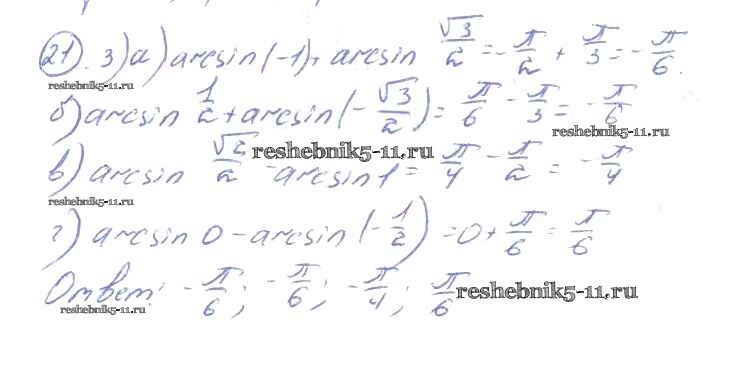 21. 3) а) arcsin(-1)+ arcsin √3/2 = -π/2 + π/3 = -π/6.
reshebnik5-11.ru
б) arcsin 1/2 + arcsin(-√3/2) = π/6 - π/3 = -π/6
reshebnik5-11.ru
в) arcsin √2/2 - arcsin 1 = π/4 - π/2 = -π/4
reshebnik5-11.ru
reshebnik5-11.ru
г) arcsin 0 - arcsin(-1/2) = 0 + π/6 = π/6
Ответ: -π/6; -π/6; -π/4; π/6
reshebnik5-11.ru
reshebnik5-11.ru